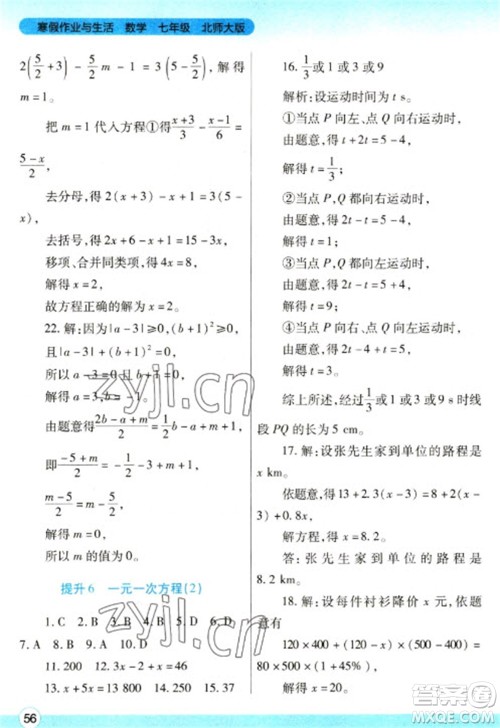 寒假作业与生活 数学 七年级 北师大版
2(5/2+3)-5/2m-1=5(5-5/2), 解得
m=1.
把 m=1 代入方程①得 (x+3)/3 -
(5-x)/2,
去分母,得 2(x+3)-6=3(5-x),
去括号,得 2x+6-6=15-3x,
移项、合并同类项,得 5x=
解得 x=
故方程正确的解为 x=2.
22. 解:因为|a-3|≥0,(b+1)²≥0,
且|a-3|+(b+1)²=0,
所以 a-3=0 且 b+1=0,
解得 a=3,b=-1.
由题意得
即
解得 m=0.
所以 m 的值为 0.
提升6 一元一次方程(2)
1. C 2. B 3. B 4. C 5. D 6. D
7. A 8. B 9. A 10. D
11. 200 12. x+6x=46
13. x+5 14. 80 15.
56
16. 1/3或1或3或9
解析:设运动时间为 t s.
①当点 P 向左、点 Q 向右运动时,
由题意,得 t+2t=5-4,
解得 t=1/3;
②当点 P,Q 都向右运动时,
由题意,得 2t-t=5-4,
解得 t=1;
③当点 P,Q 都向左运动时,
解得 t=9;
④当点 P 向右、点 Q 向左运动时,
解得 t=3.
综上所述,当 t=1/3或1或3或9 s 时线
段 PQ 的长为 5 cm.
17. 解:设张先生家到单位的路程是
x km.
依题意,得 13+2.3(x-3)=8+
2+0.8x,
解得 x=8.2.
答:张先生家到单位的路程是
8.2 km.
18. 解:设每件衬衫降价 x 元,依题意
有
120×400+(120-x)×(500-400)=
80×500×(1+45%),
解得 x=20.
zyjl.cn
zyjl.cn
答案圈
MXQE.COM